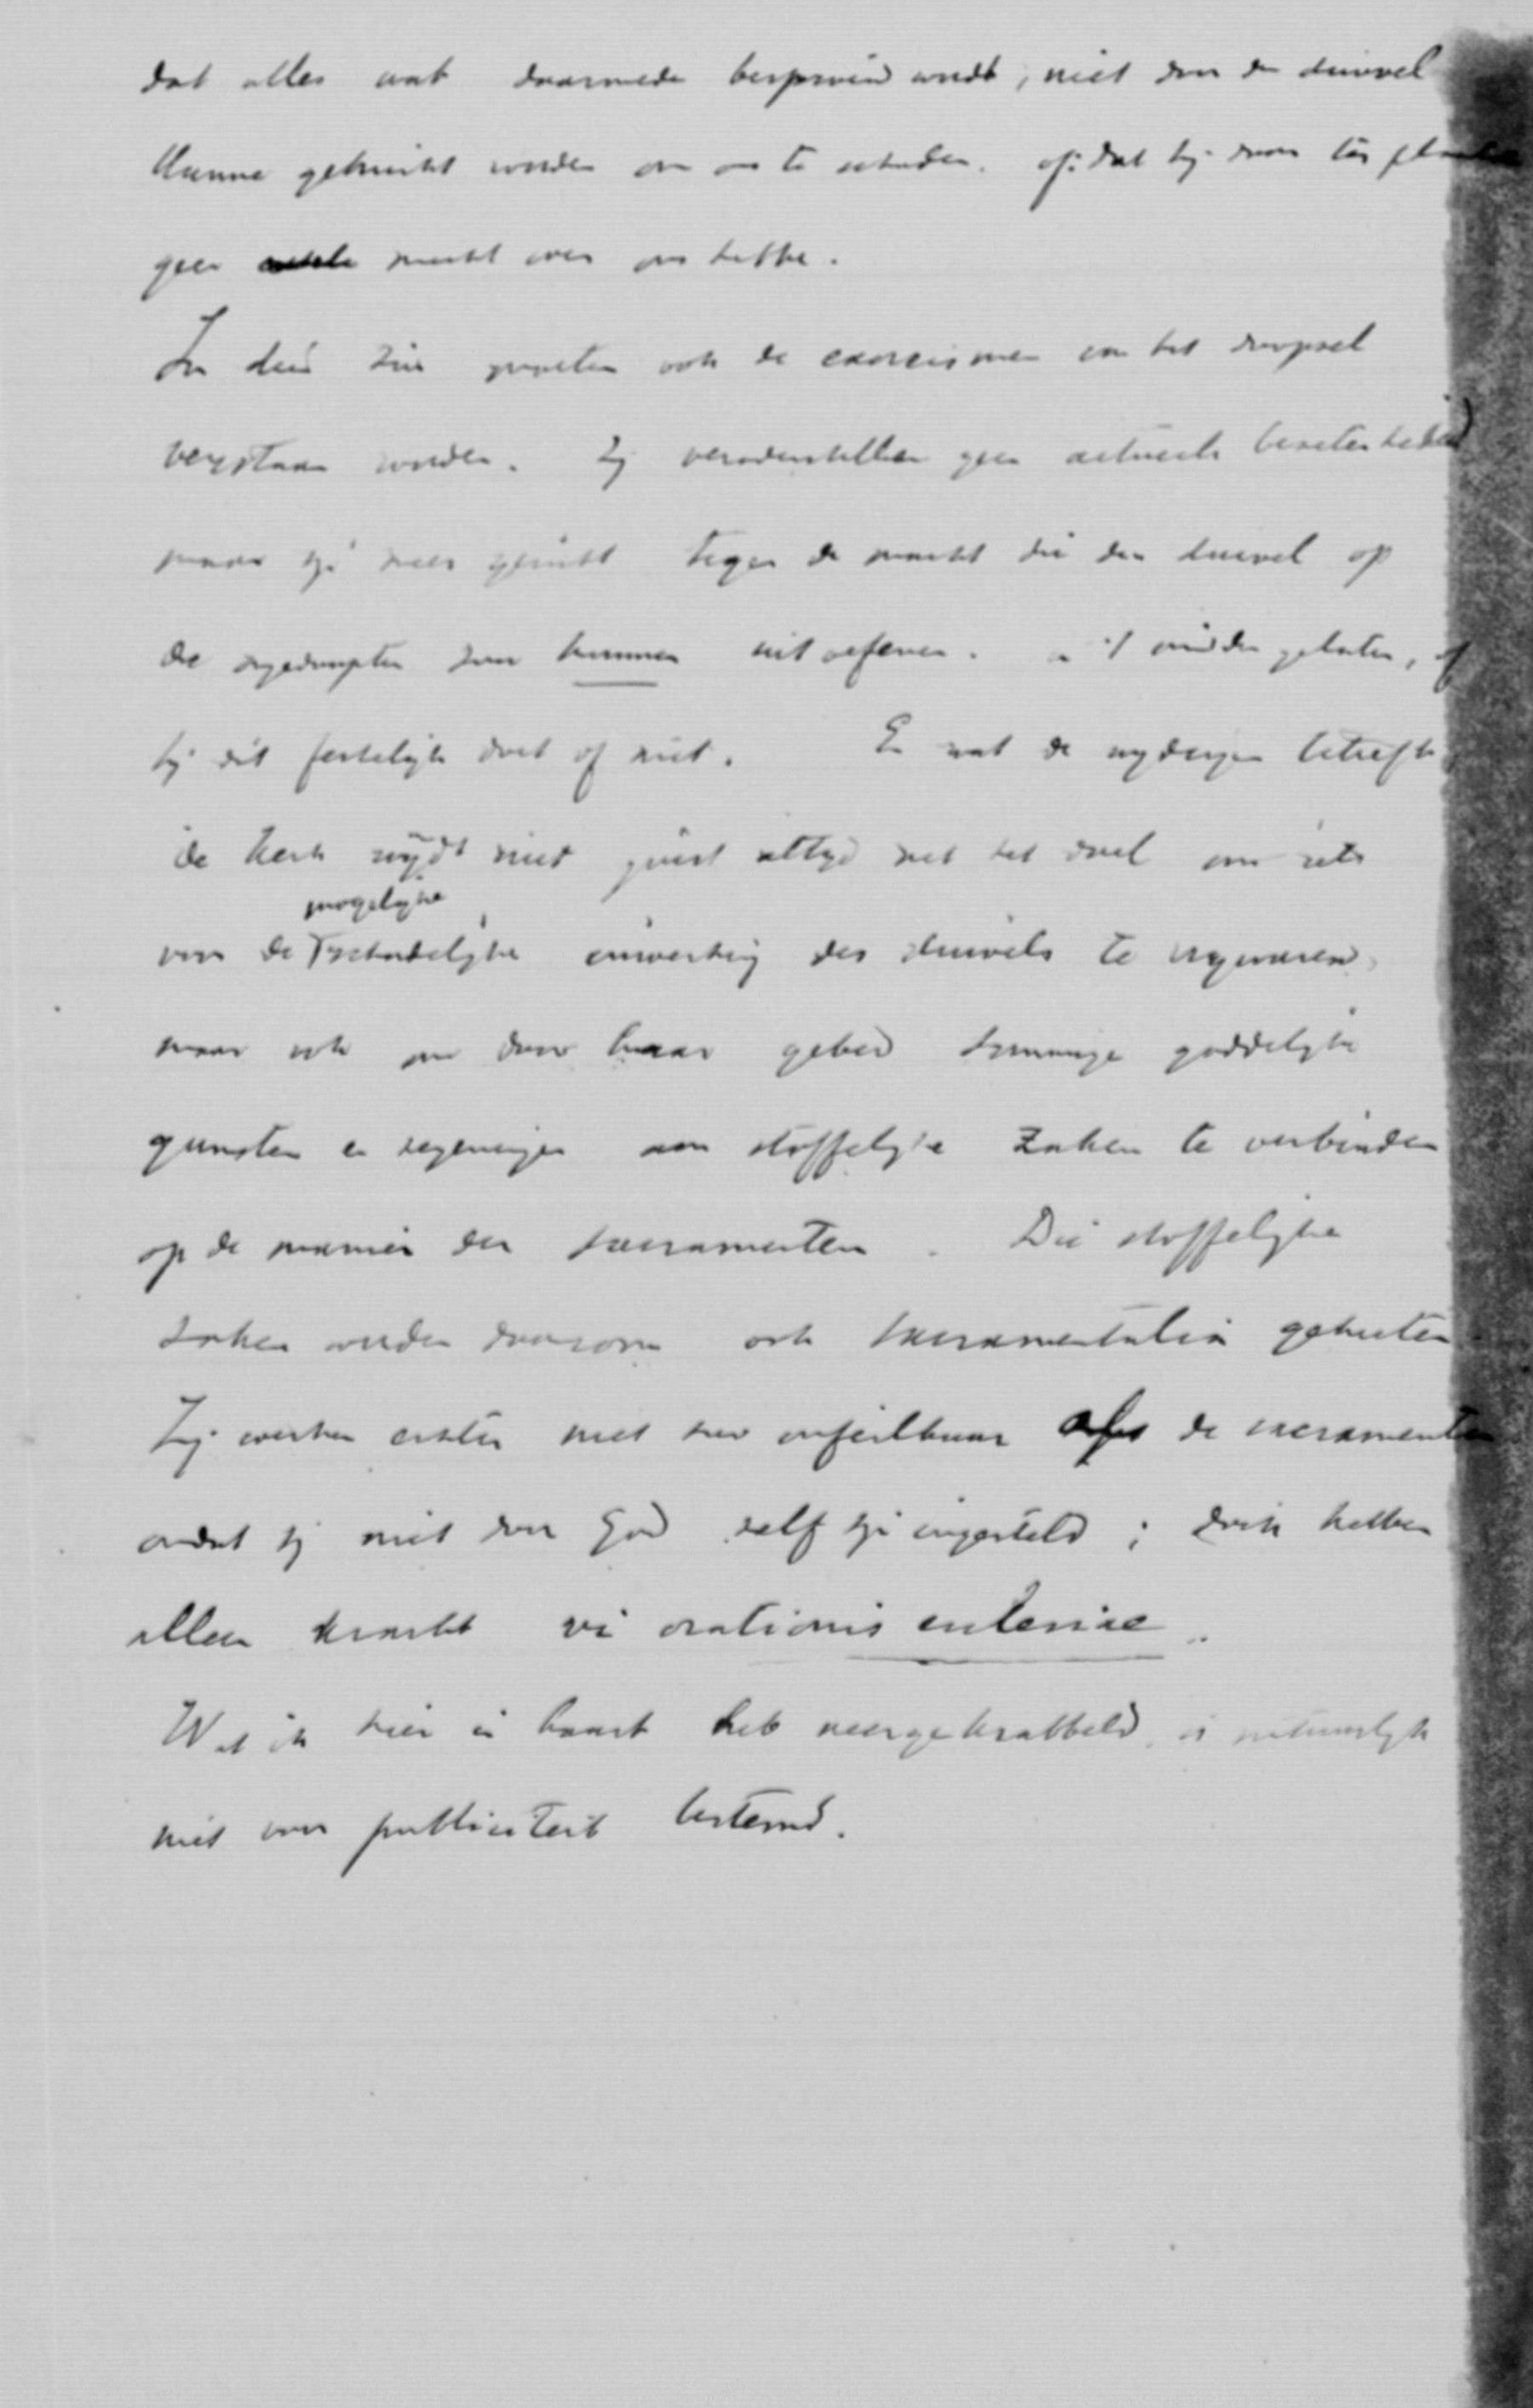 dat alles wat daarmede besproeid wordt, niet door den duivel
kunne gebruikt worden om ons te schaden. of: dat hij door
geen macht over ons hebbe.
In dien zin moeten ook de exorcismen van het doopsel
verstaan worden. Zij veronderstellen geen actueele bezetenheid
maar zijn meer gericht tegen de macht die den duivel op
de ongedoopten zou kunnen uitoefenen. in 't midden gelaten, of
hij dit feitelijk doet of niet. En wat de wijdingen betreft
de Kerk wijdt niet juist altijd met het doel om iets
mogelijke
voor de schadelijke inwerking des duivels te vrijwaren,
maar ook om door haar gebed sommige goddelijke
gunsten en zegeningen aan stoffelijke zaken te verbinden
op de manier der sacramenten. Die stoffelijke
zaken worden daarom ook sacramentalia geheeten
Zij werken echter niet zoo onfeilbaar als de sacramenten
omdat zij niet door God zelf zijn ingesteld; doch hebben
alleen kracht vi orationis ecclesiae.
Wat ik hier in haast heb neergekrabbeld, is natuurlijk
niet voor publiciteit bestemd.